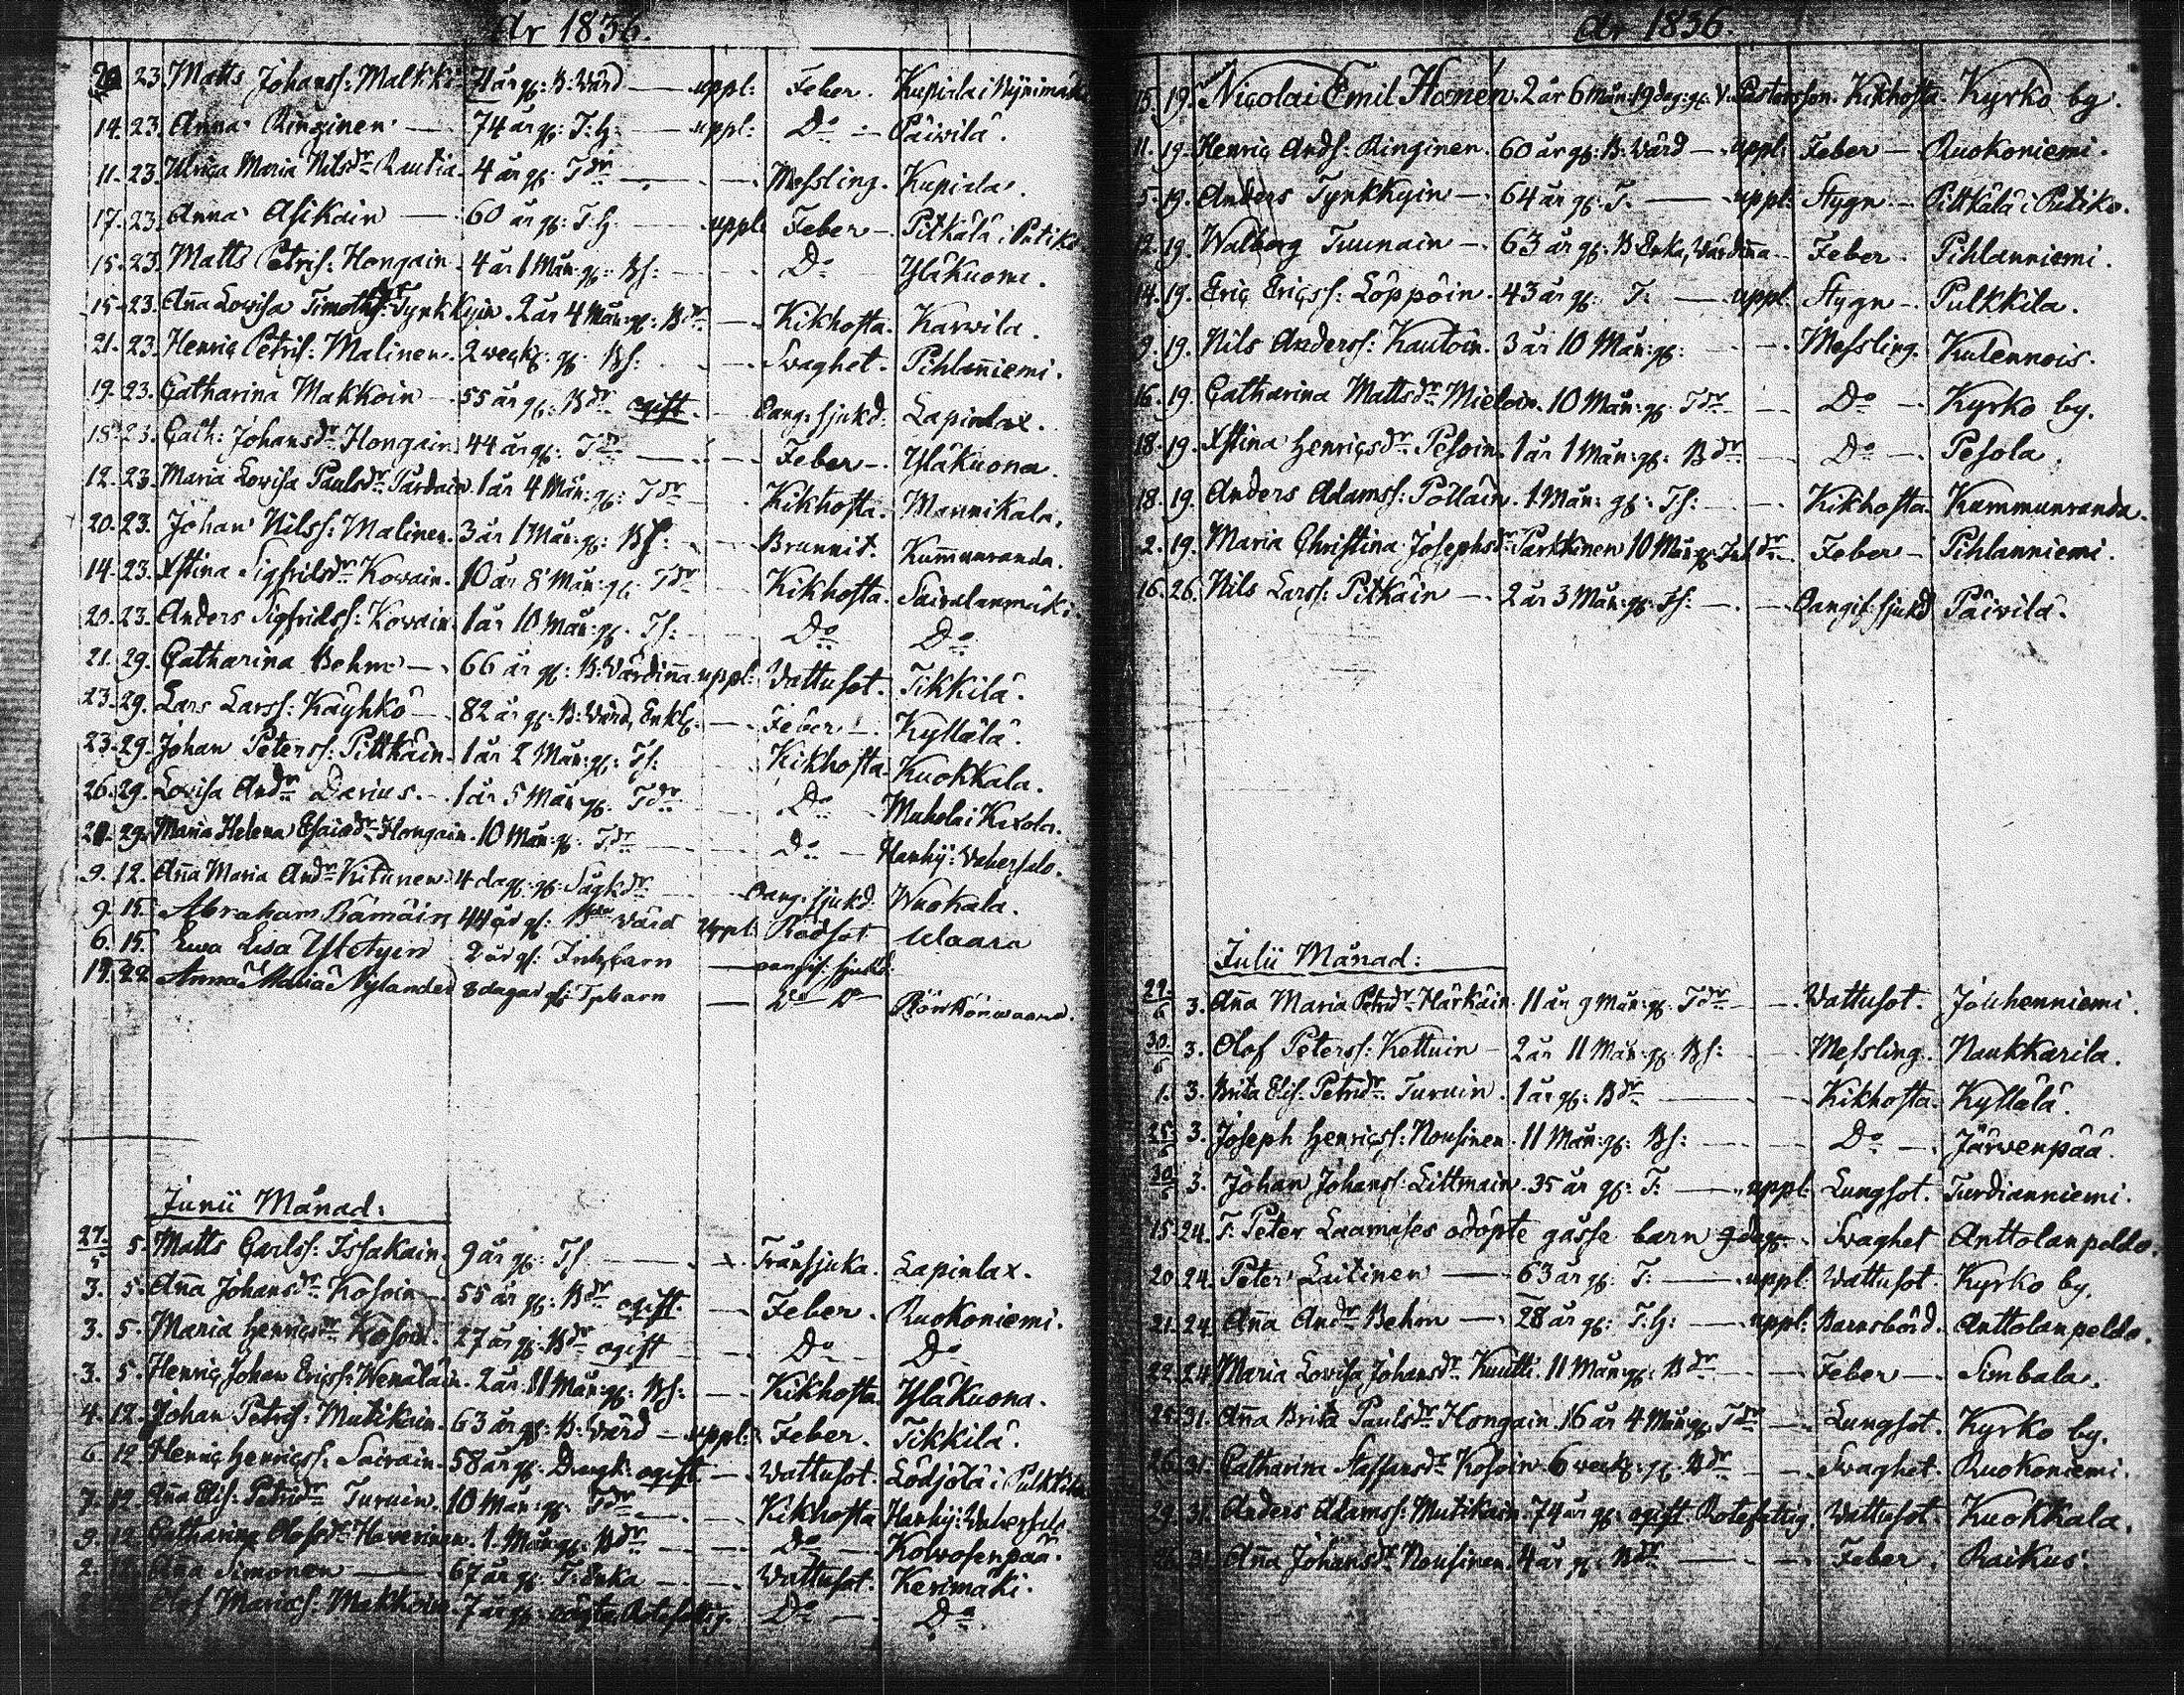 År 1836.
20. 23. Matts Johanss: Malkki 71 år gl: B: Värd — uppl: Feber. Kupiala i Nynimäk
14. 23. Anna Ringinen — 74 år gl: T: H: — uppl: Do — Päivilä.
11. 23. Ulrica Maria Nilsdr Rautia. 4 år gl: Tdr — Messling. Kupiala.
17. 23. Anna Asikain — 60 år gl: T: H: — uppl: Feber — Pitkälä i Putiko
15. 23. Matts Petris: Hongain 4 år 1 Mån: gl: Bs: — Do Yläkuona.
15. 23. Aña Lovisa Timothdr Tynkkyin. 2 år 4 Mån: gl: Bdr — Kikhosta. Karvila.
21. 23. Henric Petris: Malinen. 2 veck: gl: Bs: — Svaghet. Pihlañiemi.
19. 23. Catharina Makkoin — 55 år gl: Bdr ogift. — Oang: sjukd: Lapinlax.
18. 23. Cath: Johansdr Hongain 44 år gl: Tdr — Feber —. Yläkuona.
12. 23. Maria Lovisa Paulsdr Pardain. 1 år 4 Mån: gl: Tdr — Kikhosta. Mannikala.
20. 23. Johan Nilss: Malinen. 3 år 1 Mån: gl: Bs: — Brunnit. Kummunranda.
14. 23. Xstina Sigfridsdr Kovain. 10 år 8 Mån: gl: Tdr — Kikhosta. Sairalanmäki.
20. 23. Anders Sigfridss: Kovain. 1 år 10 Mån: gl: Ts: Do Do
21. 29. Catharina Behm — 66 år gl: B: Värdiña uppl: Vattusot. Tikkilä.
23. 29. Lars Larss: Käyhkö — 82 år gl: B: Värd, Enkl: — Feber — Kyllälä.
23. 29. Johan Peterss: Pitkäin. 1 år 2 Mån: gl: Ts: Kikhosta. Kuokkala.
26. 29. Lovisa Andr Darius. — 1 år 5 Mån: gl: Tdr Do Muhola i Kixola.
29. Maria Helena Esaiædr Hongain. 10 Mån: gl: Tdr Do — Hanhij: Vahersalo.
9. 12. Aña Maria Andr Kitunen. 4 dag: gl: Sågkdr Oang: sjukd. Wuokala.
9. 15. Abraham Rämäin 44 år gl: Värd uppl: Rödsot
6. 15. Ewa Lisa 2 år gl: Inhbarn — oangif: sjukd:
22. Anna Maria Nylander 8 dagar gl: — Do Do Rönkönvaara.
Junii Månad:
27/5 5. Matts Carlss: Issakain. 9 år gl: Ts — Tränsjuka. Lapinlax.
3. 5. Aña Johansdr Kosoin — 55 år gl: Bdr ogift. — Feber. Ruokoniemi.
3. 5. Maria Henricsdr Kosoin. 27 år gl: Bdr ogift — Do Do
3. 5. Henric Johan Ericss: Wenäläin. 2 år 11 Mån: gl: Bs: — Kikhosta. Yläkuona.
4. 12. Johan Petris: Mutikain. 63 år gl: B: Värd — uppl: Feber. Tikkilä.
6. 12. Henric Henricss: Sairain. 58 år gl: Dreng: ogift — Vattusot. Lödjölä i Pulkkila
7. 12. Aña Elis: Petridr Turuin. 10 Mån: gl: Tdr — Kikhosta Hanhij: Vahersalo
9. 12. Catharina Olofsdr Haverinen. 1. Mån: gl: Bdr — Do — Kolvosenpää.
2. 12. Aña Simonen — 67 år gl: T: Enka — Vattusot. Kerimäki.
Olof Mariæs: Makkoin. 7 år gl: oägta Rotefattig. Do — Do
År 1836.
15. 19. Nicolai Emil Honen. 2 år 6 Mån: 19 dag: gl. V. Pastorsson. Kikhosta. Kyrko by.
11. 19. Henric Ands: Ringinen. 60 år gl: B. Värd — uppl: Feber — Ruokoniemi.
5. 19. Anders Tynkkyin — 64 år gl: T. — uppl: Stygn — Pitkälä i Putiko.
12. 19. Walborg Tuunain — 63 år gl: B: Enka, Värdiña — Feber Pihlanniemi.
14. 19. Eric Ericss: Löppöin. 43 år gl: T: — uppl: Stygn — Pulkkila.
9. 19. Nils Anderss: Kautoin. 3 år 10 Mån: gl: — Messling. Kulennois.
16. 19. Catharina Mattsdr Mieloin. 10 Mån: gl: Tdr — Do — Kyrko by.
18. 19. Xstina Henricsdr Pesoin. 1 år 1 Mån: gl: Bdr — Do — Pesola.
18. 19. Anders Adamss: Pölläin. 1. Mån: gl: Ts: — Kikhosta. Kummunranda.
2. 19. Maria Christina Josephsdr Parkkinen 10 Mån: gl: Inhdr — Feber — Pihlanniemi.
16. 26. Nils Larss: Pitkäin — 2 år 3 Mån: gl: Ts: — Oangif: sjukd Päivilä.
Julii Månad:
29/6 3. Aña Maria Petridr Härkäin. 11 år 9 Mån: gl: Tdr — Vattusot. Jouhenniemi.
30/6 3. Olof Peterss: Kettuin — 2 år 11 Mån: gl: Bs: Messling. Naukkarila.
1. 3. Brita Elis: Petridr Turuin. 1 år gl: Bdr — Kikhosta. Kyllälä.
25/6 3. Joseph Henricss: Nousinen. 11 Mån: gl: Bs: — Do — Järvenpää.
30/6 3. Johan Johanss: Littmain. 35 år gl: T: — uppl. Lungsot. Turdianniemi.
15. 24. T: Peter Laamases odöpte gosse barn 9 dag: — Svaghet Anttolanpeldo.
20. 24. Peter Laitinen — 63 år gl: T: — uppl: Vattusot. Kyrko by.
21. 24. Aña Andr Behm — 28 år gl: T: H: — uppl: Barnsbörd. Anttolanpeldo.
22. 24. Maria Lovisa Johansdr Kuutti. 11 Mån: gl: Bdr — Feber —. Simbala.
25. 31. Aña Brita Paulsdr Hongain. 16 år 4 Mån: gl. Tdr — Lungsot. Kyrko by.
26. 31. Catharina Staffansdr Kosoin. 6 veck: gl: Bdr — Svaghet. Ruokoniemi.
29. 31. Anders Adamss: Mutikain. 74 år gl: ogift Rotefattig. Vattusot. Kuokkala.
26. 31. Aña Johansdr Nousinen. 4 år gl: Bdr — Feber. Raikus.